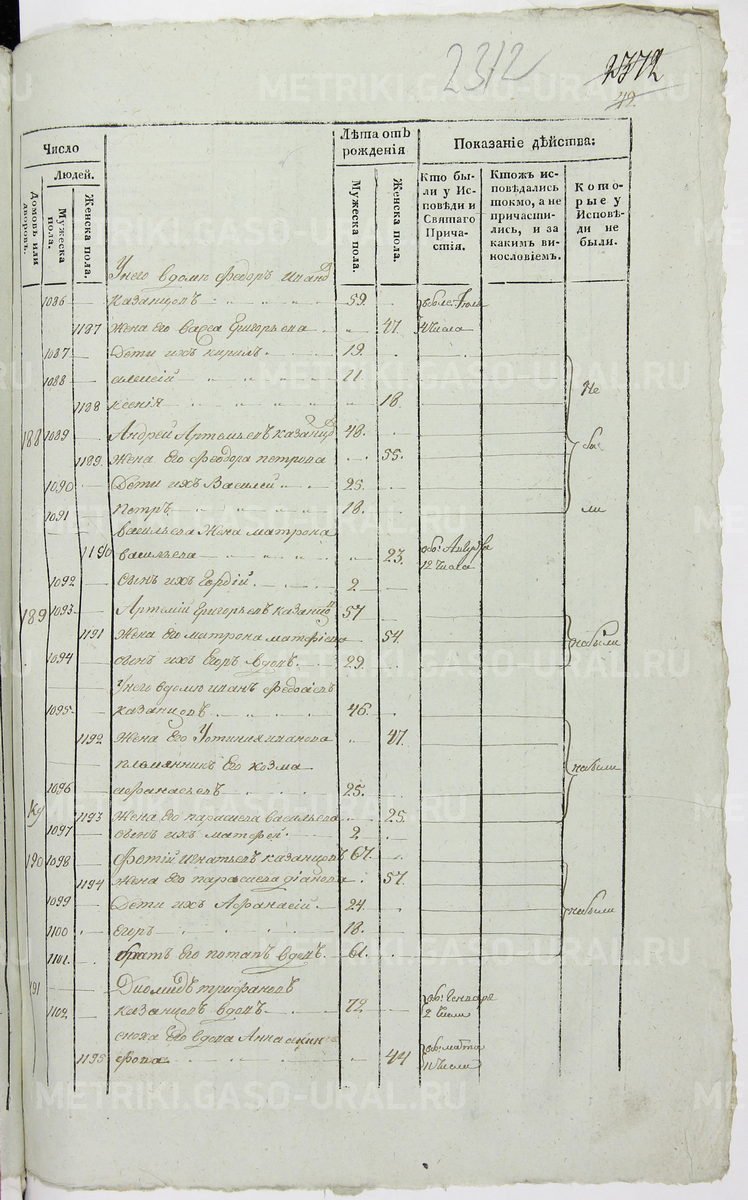 2312
2372
49.
Число
Людей.
Домовъ или дворовъ.
Мужеска пола.
Женска пола.
Лѣта отъ рожденія
Мужеска пола.
Женска пола.
Показаніе дѣйства:
Кто были у Исповѣди и Святаго Причастія.
Ктожъ исповѣдались токмо, а не причастились, и за какимъ винословіемъ.
Которые у Исповѣди не были.
Унего вдомю Федоръ Иванов
1086 Казанцовъ 59.
1187 жена Его Григорьева 47. Числа
1087 Дети ихъ кирилъ 19.
1088 алексій 21
1188 ксенія 18 Не
188 1089 Андрей Артемьевъ казанцов 48.
1189 жена Его Феодора петрова 55. бы
1090 Дети ихъ Василей 25.
1091 Петръ 18. ли
васильева жена матрона
1190 васильева 23. 12 Числа
1092 Сынъ ихъ 2
189 1093 Артемій Григорьевъ казанцов 57
1191 жена Его матрона 54. небыли
1094 сынъ ихъ Егоръ вдовъ 29.
Унего вдомю иванъ
1095 казанцовъ 46.
1192 жена Его Устиния иванова 47.
племянникъ Его козма небыли
1096 афанасьевъ 25.
1193 жена Его парасвева васильева 25.
1097 сынъ ихъ матфей 2
190 1098 Фотій игнатьевъ казанцовъ 67.
1194 жена Его парасвева 57.
1099 Дети ихъ Афанасій 24. небыли
1100 егоръ 18.
1101 братъ Его потапъ вдовъ 61.
191 Диомидъ
1102 казанцовъ вдовъ 72 Генваря
2 Числа
сноха Его вдова Анна
1195 44 марта
11 Числа
METRIKI.GASO-URAL.RU